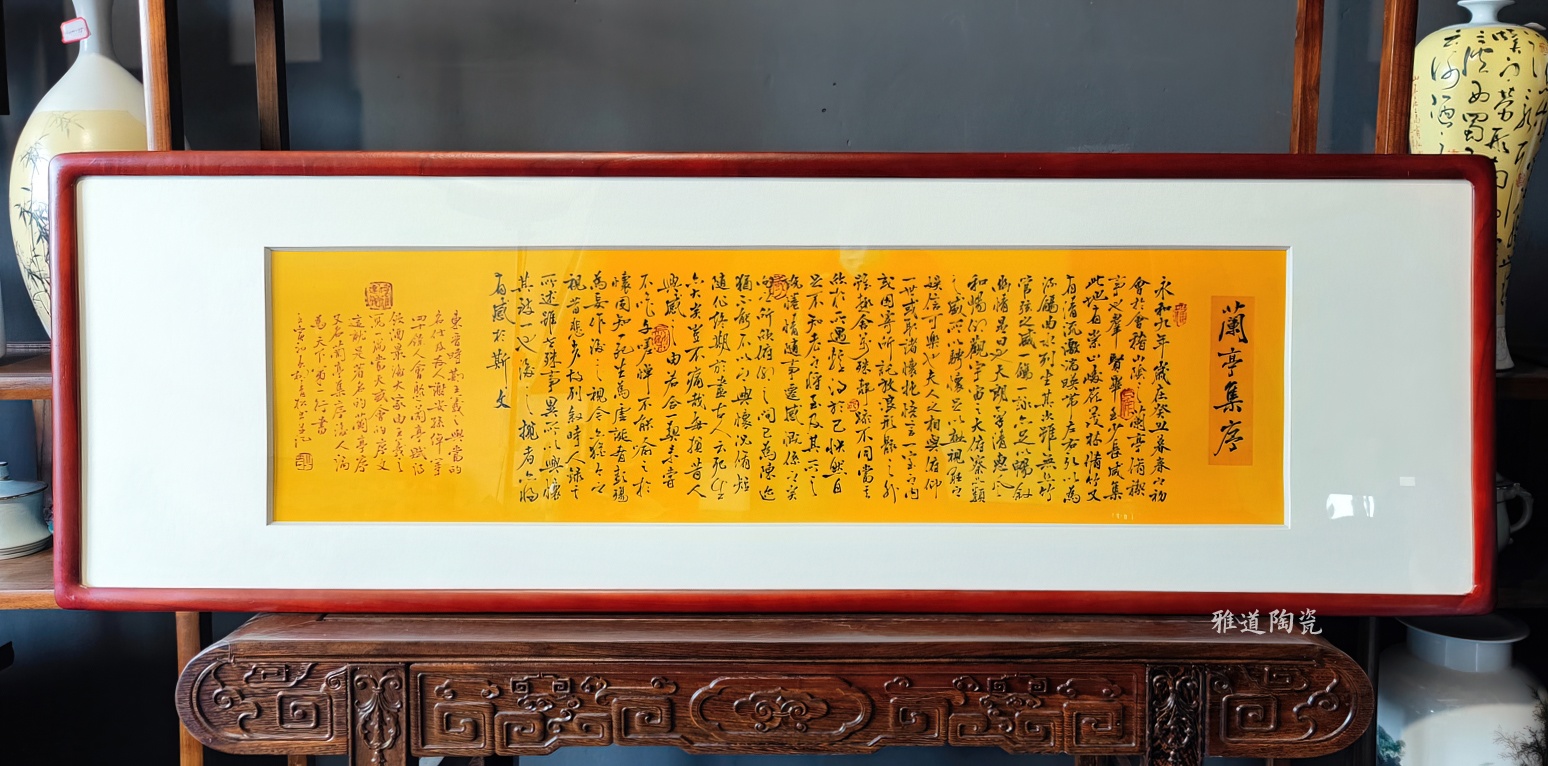 蘭亭集序
永和九年歲在癸丑暮春之初
會於會稽山陰之蘭亭脩禊
事也羣賢畢至少長咸集
此地有崇山峻嶺茂林脩竹又
有清流激湍暎帶左右引以為
流觴曲水列坐其次雖無絲竹
管弦之盛一觴一詠亦足以暢敘
幽情是日也天朗氣清惠風
和暢仰觀宇宙之大俯察品類
之盛所以騁懷足以極視聽之
娛信可樂也夫人之相與俯仰
一世或取諸懷抱悟言一室之內
或因寄所託放浪形骸之外
雖趣舍萬殊靜躁不同當其
欣於所遇暫得於己快然自
足不知老之將至及其所之
既惓情隨事遷感慨係之矣
向之所欣俛仰之間已為陳迹
猶不能不以之興懷況脩短
隨化終期於盡古人云死生
亦大矣豈不痛哉每攬昔人
興感之由若合一契未嘗
不臨文嗟悼不能喻之於
懷固知一死生為虛誕齊彭殤
為妄作後之視今亦猶今之
視昔悲夫故列敘時人錄其
所述雖世殊事異所以興懷
其致一也後之攬者亦將
有感於斯文
東晉時王羲之與當時
名仕及友人謝安孫綽等
四十餘人會聚於蘭亭賦詩
飲酒大家由王羲之
寫當天盛會的序文
這就是著名的蘭亭序
又名蘭亭集序後人論
為天下第一行書
雅道陶瓷